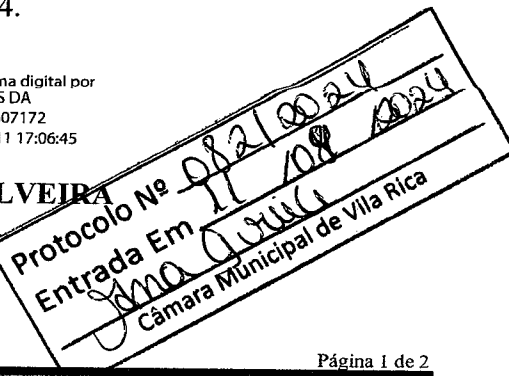 4.
ma digital por
S DA
07172
11 17:06:45
LVEIRA
Protocolo Nº 082/2024
Entrada Em 11/09/2024
Câmara Municipal de Vila Rica
Página 1 de 2